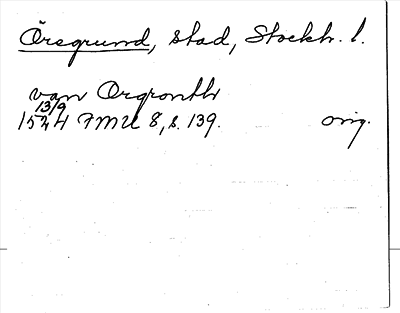 Öregrund, stad, Stockh. l.
van Orgronth
13/9
1524 FMU 8, s. 139. orig.